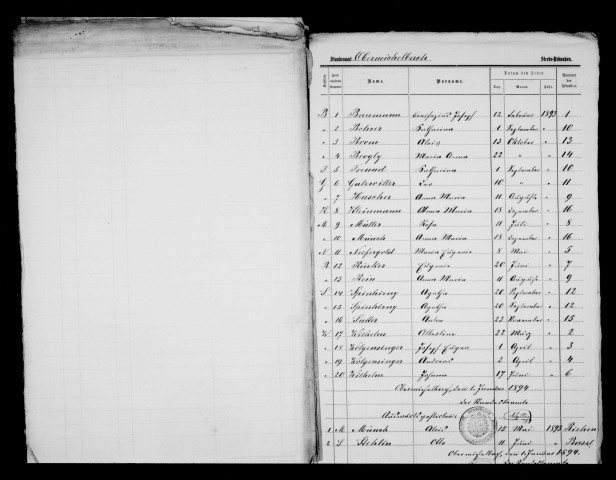 Standesamt Obermichelbach Sterb-Urkunden
Name. Vorname. Datum des Todes Nummer der Urkunden
Tag. Monat. Jahr.
B 1 Baumann Bonifazius Joseph 12 Februar 1893 1
" 2 Bohrer Katharina 1 September " 10
" 3 Brom Alois 13 Oktober " 13
" 4 Brogly Maria Anna 22 " " 14
F 5 Freund Katharina 1 September " 10
G 6 Gutzwiller 10 " " 11
" 7 Hascher Anna Maria 11 August " 9
H 8 Kleinmann Anna Maria 18 Dezember " 16
M 9 Müller Rosa 11 Juli " 8
" 10 Münch Anna Maria 18 Dezember " 16
N 11 Maria Eugenie 8 Mai " 5
R 12 Rucker Eugenie 20 Juni " 7
" 13 Rein Anna Maria 11 August " 9
S 14 Spinhirny Agatha 20 September " 12
" 15 Spinhirny Agatha 20 September " 12
" 16 Sutter Anton 23 November " 15
W 17 Wilhelm Albertine 22 März " 2
" 18 Wölgensinger Joseph Eugen 1 April " 3
" 19 Wölgensinger Andreas 2 April " 4
" 20 Wilhelm Johann 17 Juni " 6
Obermichelbach, den 1. Januar 1894
der Standesbeamte
Auswärts gestorben:
1 M Münch Alois 18 Mai 1893 Riehen
2 S Stehlin Otto 11 Juni " Basel
Obermichelbach, den 1. Januar 1894.
der Standesbeamte